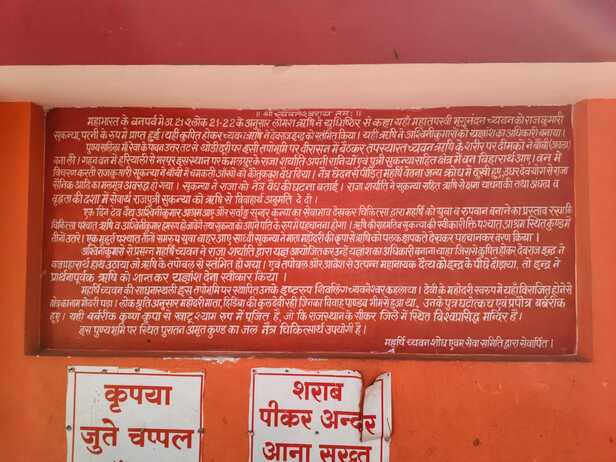 ॥ श्री च्यवनेश्वराय नमः ॥
महाभारत के वनपर्व में अ. 21 श्लोक 21-22 के अनुसार लोमश ऋषि ने युधिष्ठिर से कहा यही महातपस्वी भृगुनंदन च्यवन को राजकुमारी
सुकन्या, पत्नी के रुप में प्राप्त हुई। यही कुपित होकर च्यवन ऋषि ने देवराज इन्द्र को स्तंभित किया। यही ऋषि ने अश्विनीकुमारों को यज्ञांश का अधिकारी बनाया।
पुण्य सलिला माँ रेवा के पावन उत्तर तट से थोडी दूरी पर इसी तपोभूमि पर वीरासन में बैठकर तपस्यारत च्यवन ऋषि के शरीर पर दीमको ने बाँबी
बना ली। गहन वन में हरियाली से भरपूर इस स्थान पर के राजा शर्याति अपनी रानियों एवं पुत्री सुकन्या सहित क्षेत्र में वन विहारार्थ आए। वन में
विचरण करती राजकुमारी सुकन्या ने बाँबी में चमकती आँखों को कौतुकवश वेध दिया। नेत्र छेदन से पीडित महर्षि वेतना जन्य क्रोध में दुखी हुए, उधर देवयोग से राजा
सैनिक आदि का मलमूत्र अवरुद्ध हो गया। सुकन्या ने राजा को नेत्र वेध की घटना बताई। राजा शर्याति ने सुकन्या सहित ऋषि से क्षमा याचना की तथा अंधत्व व
वृद्धता की दशा में सेवार्थ राजपुत्री सुकन्या को ऋषि से विवाहार्थ अनुमति दे दी।
एक दिन देव वैद्य अश्विनीकुमार आश्रम आए और सर्वांग सुन्दर कन्या का सेवाभाव देखकर चिकित्सा द्वारा महर्षि को युवा व रुपवान बनाने का प्रस्ताव रखा कि
चिकित्सा पश्चात ऋषि व अश्विनीकुमार समरुप हो जावेंगे तथा सुकन्या को अपने पति के रुप में पहचानना होगा। ऋषि की सहमति व सुकन्या की स्वीकारोक्ति पश्चात आश्रम स्थित कुण्ड में
तीनों उतरे। एक मुहूर्त पश्चात तीनो समरुप युवा बाहर आए साध्वी सुकन्या ने माता महोदरी की कृपा से ऋषि को पलक झपकते देखकर पहचानकर वरण किया।
अश्विनीकुमारों से प्रसन्न महर्षि च्यवन ने राजा शर्याति द्वारा यज्ञ आयोजित कर उन्हें यज्ञांश का अधिकारी बनाना चाहा जिससे कुपित होकर देवराज इन्द्र ने
वज्र प्रहारार्थ हाथ उठाया जो ऋषि के तपोबल से स्तंभित हो गया। एवं तपोबल और आवेश से उत्पन्न महानायक दैत्य को इन्द्र के पीछे दौडाया, तो इन्द्र ने
प्रार्थनापूर्वक ऋषि को शान्त कर यज्ञांश देना स्वीकार किया।
महर्षि च्यवन की साधनास्थली इस तपोभूमि पर स्थापित उनके इष्टरुप शिवलिंग च्यवनेश्वर कहलाया। देवी के महोदरी स्वरुप में यहाँ विराजित होने से
क्षेत्र का नाम मेंदरी पडा। लोक श्रुति अनुसार महोदरी माता, हिडिंबा की कुलदेवी रही जिनका विवाह पाण्डव भीम से हुआ था, उनके पुत्र घटोत्कच एवं प्रपौत्र बर्बरीक
हुए। यही बर्बरीक कृष्ण कृपा से खाटू श्याम रुप में पूजित है, जो कि राजस्थान के सीकर जिले में स्थित विश्वप्रसिद्ध मन्दिर है।
इस पुण्य भूमि पर स्थित पुरातन अमृत कुण्ड का जल नेत्र चिकित्सार्थ उपयोगी है।
महर्षि च्यवन शोध एवम सेवा समिति द्वारा सेवार्पित।
कृपया
जुते चप्पल
शराब
पीकर अन्दर
आना सख्त